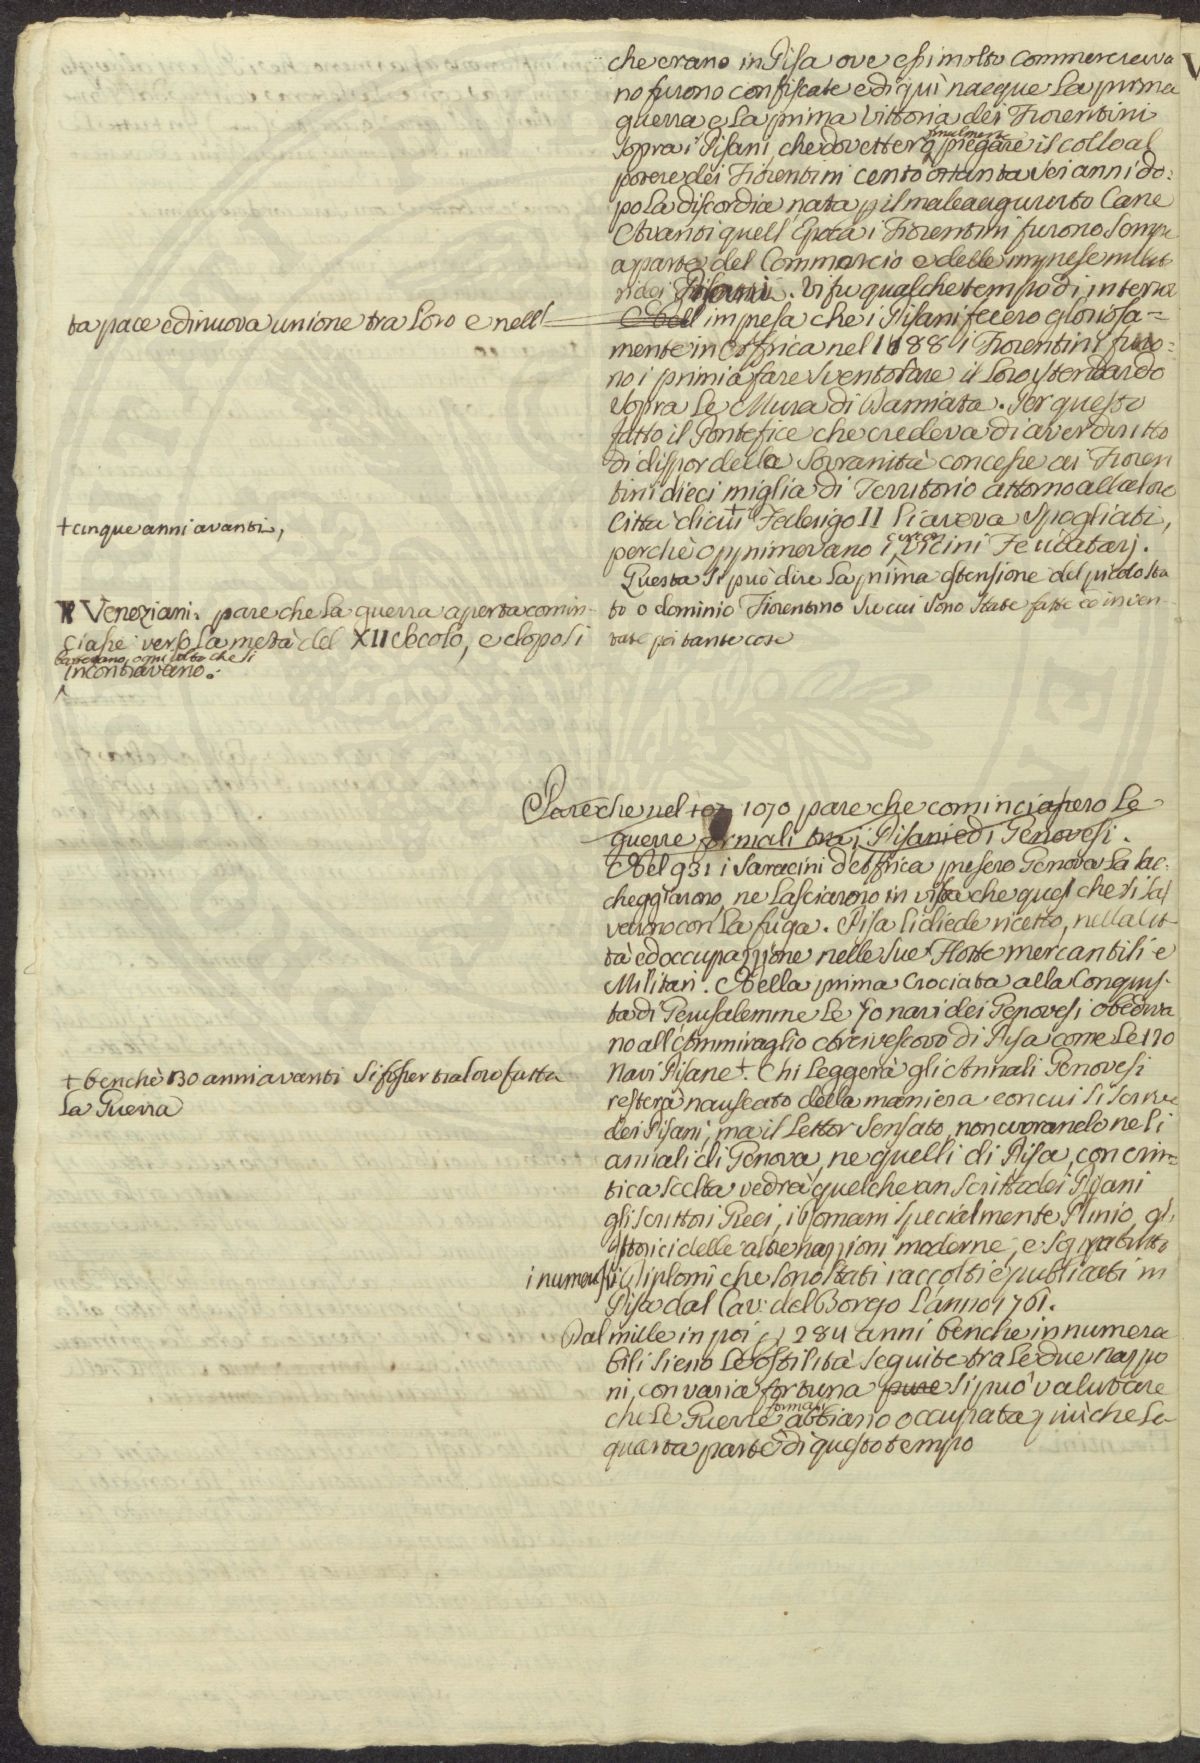 che erano in Pisa ove essi molto commerciava
no furono confiscate e di quì nacque la prima
guerra e la prima Vittoria dei Fiorentini
sopra i Pisani, che dovettero finalmente piegare il collo al
potere dei Fiorentini cento ottanta sei anni do:
po la discordia nata p il malaugurato Cane
Avanti quell'Epoca i Fiorentini furono sempre
a parte del Commercio e delle imprese milit
ri dei Pisani. Vi fu qualche tempo di interrot
ta pace e di nuova unione tra loro e nell'
Nell impresa che i Pisani fecero gloriosa=
mente in Affrica nel 1188 i Fiorentini furo:
no i primi a fare sventolare il loro stendardo
sopra le Mura di Damiata. Per questo
fatto il Pontefice che credeva di aver diritto
di dispor della Sovranità concesse ai Fioren
tini dieci miglia di Territorio attorno alla loro
Città di cui + Federigo II li aveva spogliati,
+ cinque anni avanti,
perchè opprimevano i, vicini Feudatarj.
Questa si può dire la prima estensione del picolo sta
to o dominio Fiorentino su cui sono state fatte ed inven
tate poi tante cose
Veneziani. pare che la guerra aperta comin-
ciasse verso la metà del XII secolo, e dopo si
battevano ogni volta che si
incontravano.
Pare che nel 107 1070 pare che cominciassero le
guerre formali tra i Pisani e di Genovesi.
Nel 931 i Saracini d'Affrica presero Genova la sac:
cheggiarono, ne lasciarono in vita che quei che si sal
varono con la fuga. Pisa li diede ricetto, nella Cit-
tà ed occupazzione nelle sue Flotte mercantili e
Militari. Nella prima Crociata alla Conquis-
ta di Gerusalemme le 70 navi dei Genovesi obediva
no all'Ammiraglio Arcivescovo di Pisa come le 120
Navi Pisane +. Chi leggerà gli Annali Genovesi
+ benchè 30 anni avanti si fosser tra loro fatta
la Guerra
resterà nauseato della maniera con cui si scrive
dei Pisani, ma il Lettor sensato, non curando ne li
annali di Genova, ne quelli di Pisa, con crit=
tica scelta vedrà quel che an scritto dei Pisani
gli scrittori Greci, i Romani specialmente Plinio, gl'
Istorici delle altre nazzioni moderne, e sopra tutto
i numerosi Diplomi che sono stati raccolti e publicati in
Pisa dal Cav: del Borgo l'anno 1761.
Dal mille in poi p 284 anni benche innumera
bili sieno le ostilità seguite tra le due nazzio
ni, con varia fortuna pure si può valutare
che le Guerre formali abbiano occupata più che la
quarta parte di questo tempo